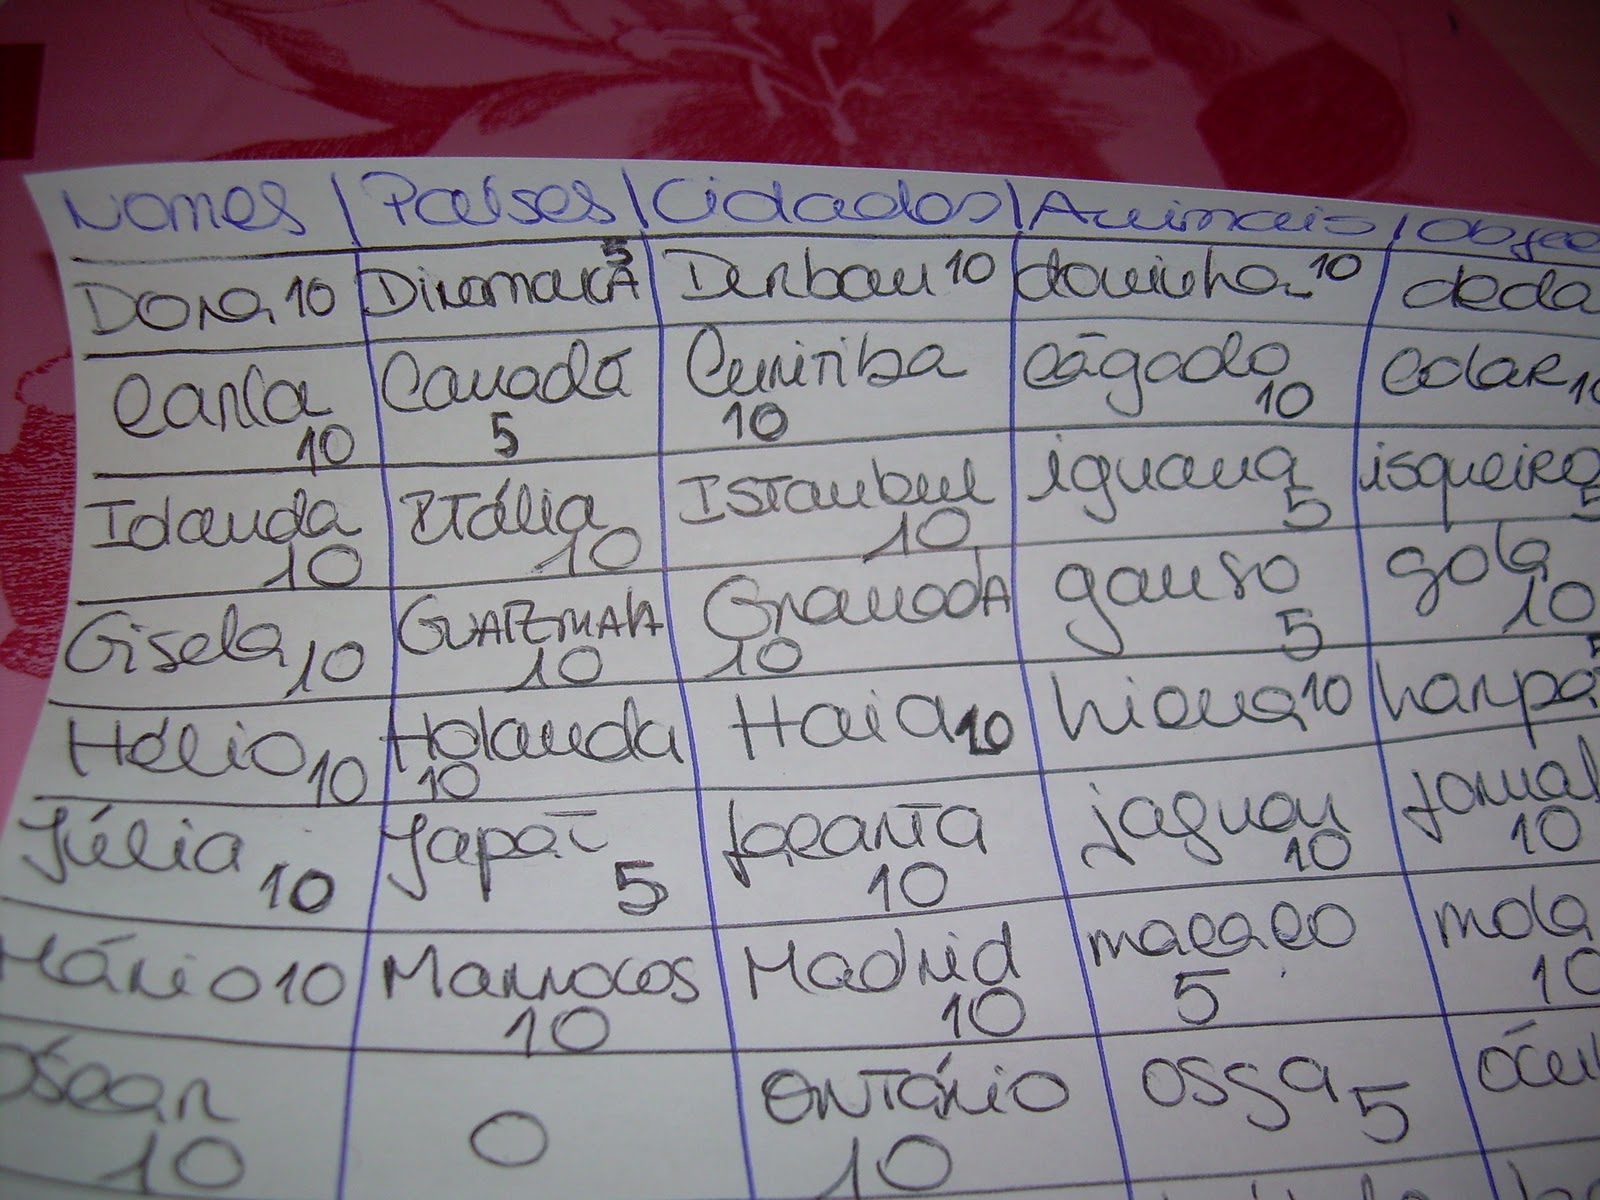 Nomes | Países | Cidades | Animais | Objec
Dora 10 Dinamarca 5 Durban 10 doninha 10 deda
Carla 10 Canadá 5 Curitiba 10 cágado 10 colar 10
Idanda 10 Itália 10 Istanbul 10 iguana 5 isqueiro 5
Gisela 10 GUATEMALA 10 Granada 10 ganso 5 gola 10
Hélio 10 Holanda 10 Haia 10 hiena 10 harpa 5
Júlia 10 Japão 5 Jacarta 10 jaguar 10 jornal 10
Mário 10 Marrocos 10 Madrid 10 macaco 5 mola 10
Óscar 10 0 Ontário 10 ossga 5 ócul